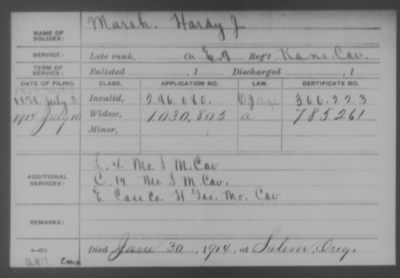 NAME OF SOLDIER: Marsh, Hardy J.
SERVICE: Late rank, Co. E. 9 Reg't Kans. Cav.
TERM OF SERVICE: Enlisted , 1 Discharged , 1
DATE OF FILING. CLASS. APPLICATION NO. LAW. CERTIFICATE NO.
1879 July 3 Invalid, 296.080. 366.223
1914 July 10 Widow, 1030,805 a 785,261
Minor,
ADDITIONAL SERVICES: E. 4. Mo. S. M. Cav
C. 14. Mo. S. M. Cav.
E. Cass Co. H. Gds. Mo. Cav
REMARKS:
Died June 30, 1914, at Salem, Oreg.